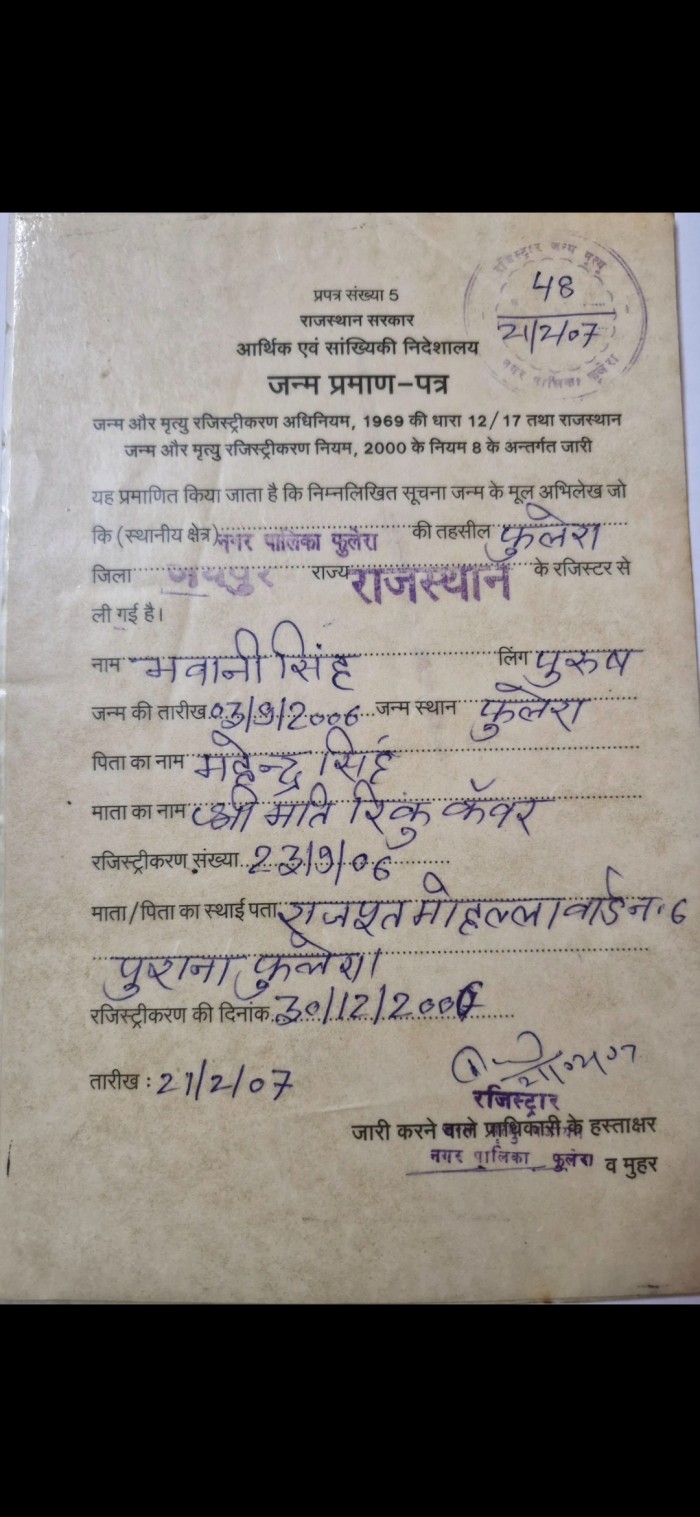 रजिस्ट्रार जन्म मृत्यु
48
21/2/07
नगर पालिका फुलेरा
प्रपत्र संख्या 5
राजस्थान सरकार
आर्थिक एवं सांख्यिकी निदेशालय
जन्म प्रमाण-पत्र
जन्म और मृत्यु रजिस्ट्रीकरण अधिनियम, 1969 की धारा 12/17 तथा राजस्थान
जन्म और मृत्यु रजिस्ट्रीकरण नियम, 2000 के नियम 8 के अन्तर्गत जारी
यह प्रमाणित किया जाता है कि निम्नलिखित सूचना जन्म के मूल अभिलेख जो
कि (स्थानीय क्षेत्र) नगर पालिका फुलेरा की तहसील फुलेरा
जिला जयपुर राज्य राजस्थान के रजिस्टर से
ली गई है।
नाम भवानी सिंह लिंग पुरुष
जन्म की तारीख 03/9/2006 जन्म स्थान फुलेरा
पिता का नाम महेन्द्र सिंह
माता का नाम श्री मति रिकु कॅवर
रजिस्ट्रीकरण संख्या 23/9/06
माता/पिता का स्थाई पता राजपूत मोहल्ला वार्ड न. 6
पुराना फुलेरा
रजिस्ट्रीकरण की दिनांक 30/12/2006
तारीख : 21/2/07
रजिस्ट्रार
जारी करने वाले प्राधिकारी के हस्ताक्षर
नगर पालिका फुलेरा व मुहर